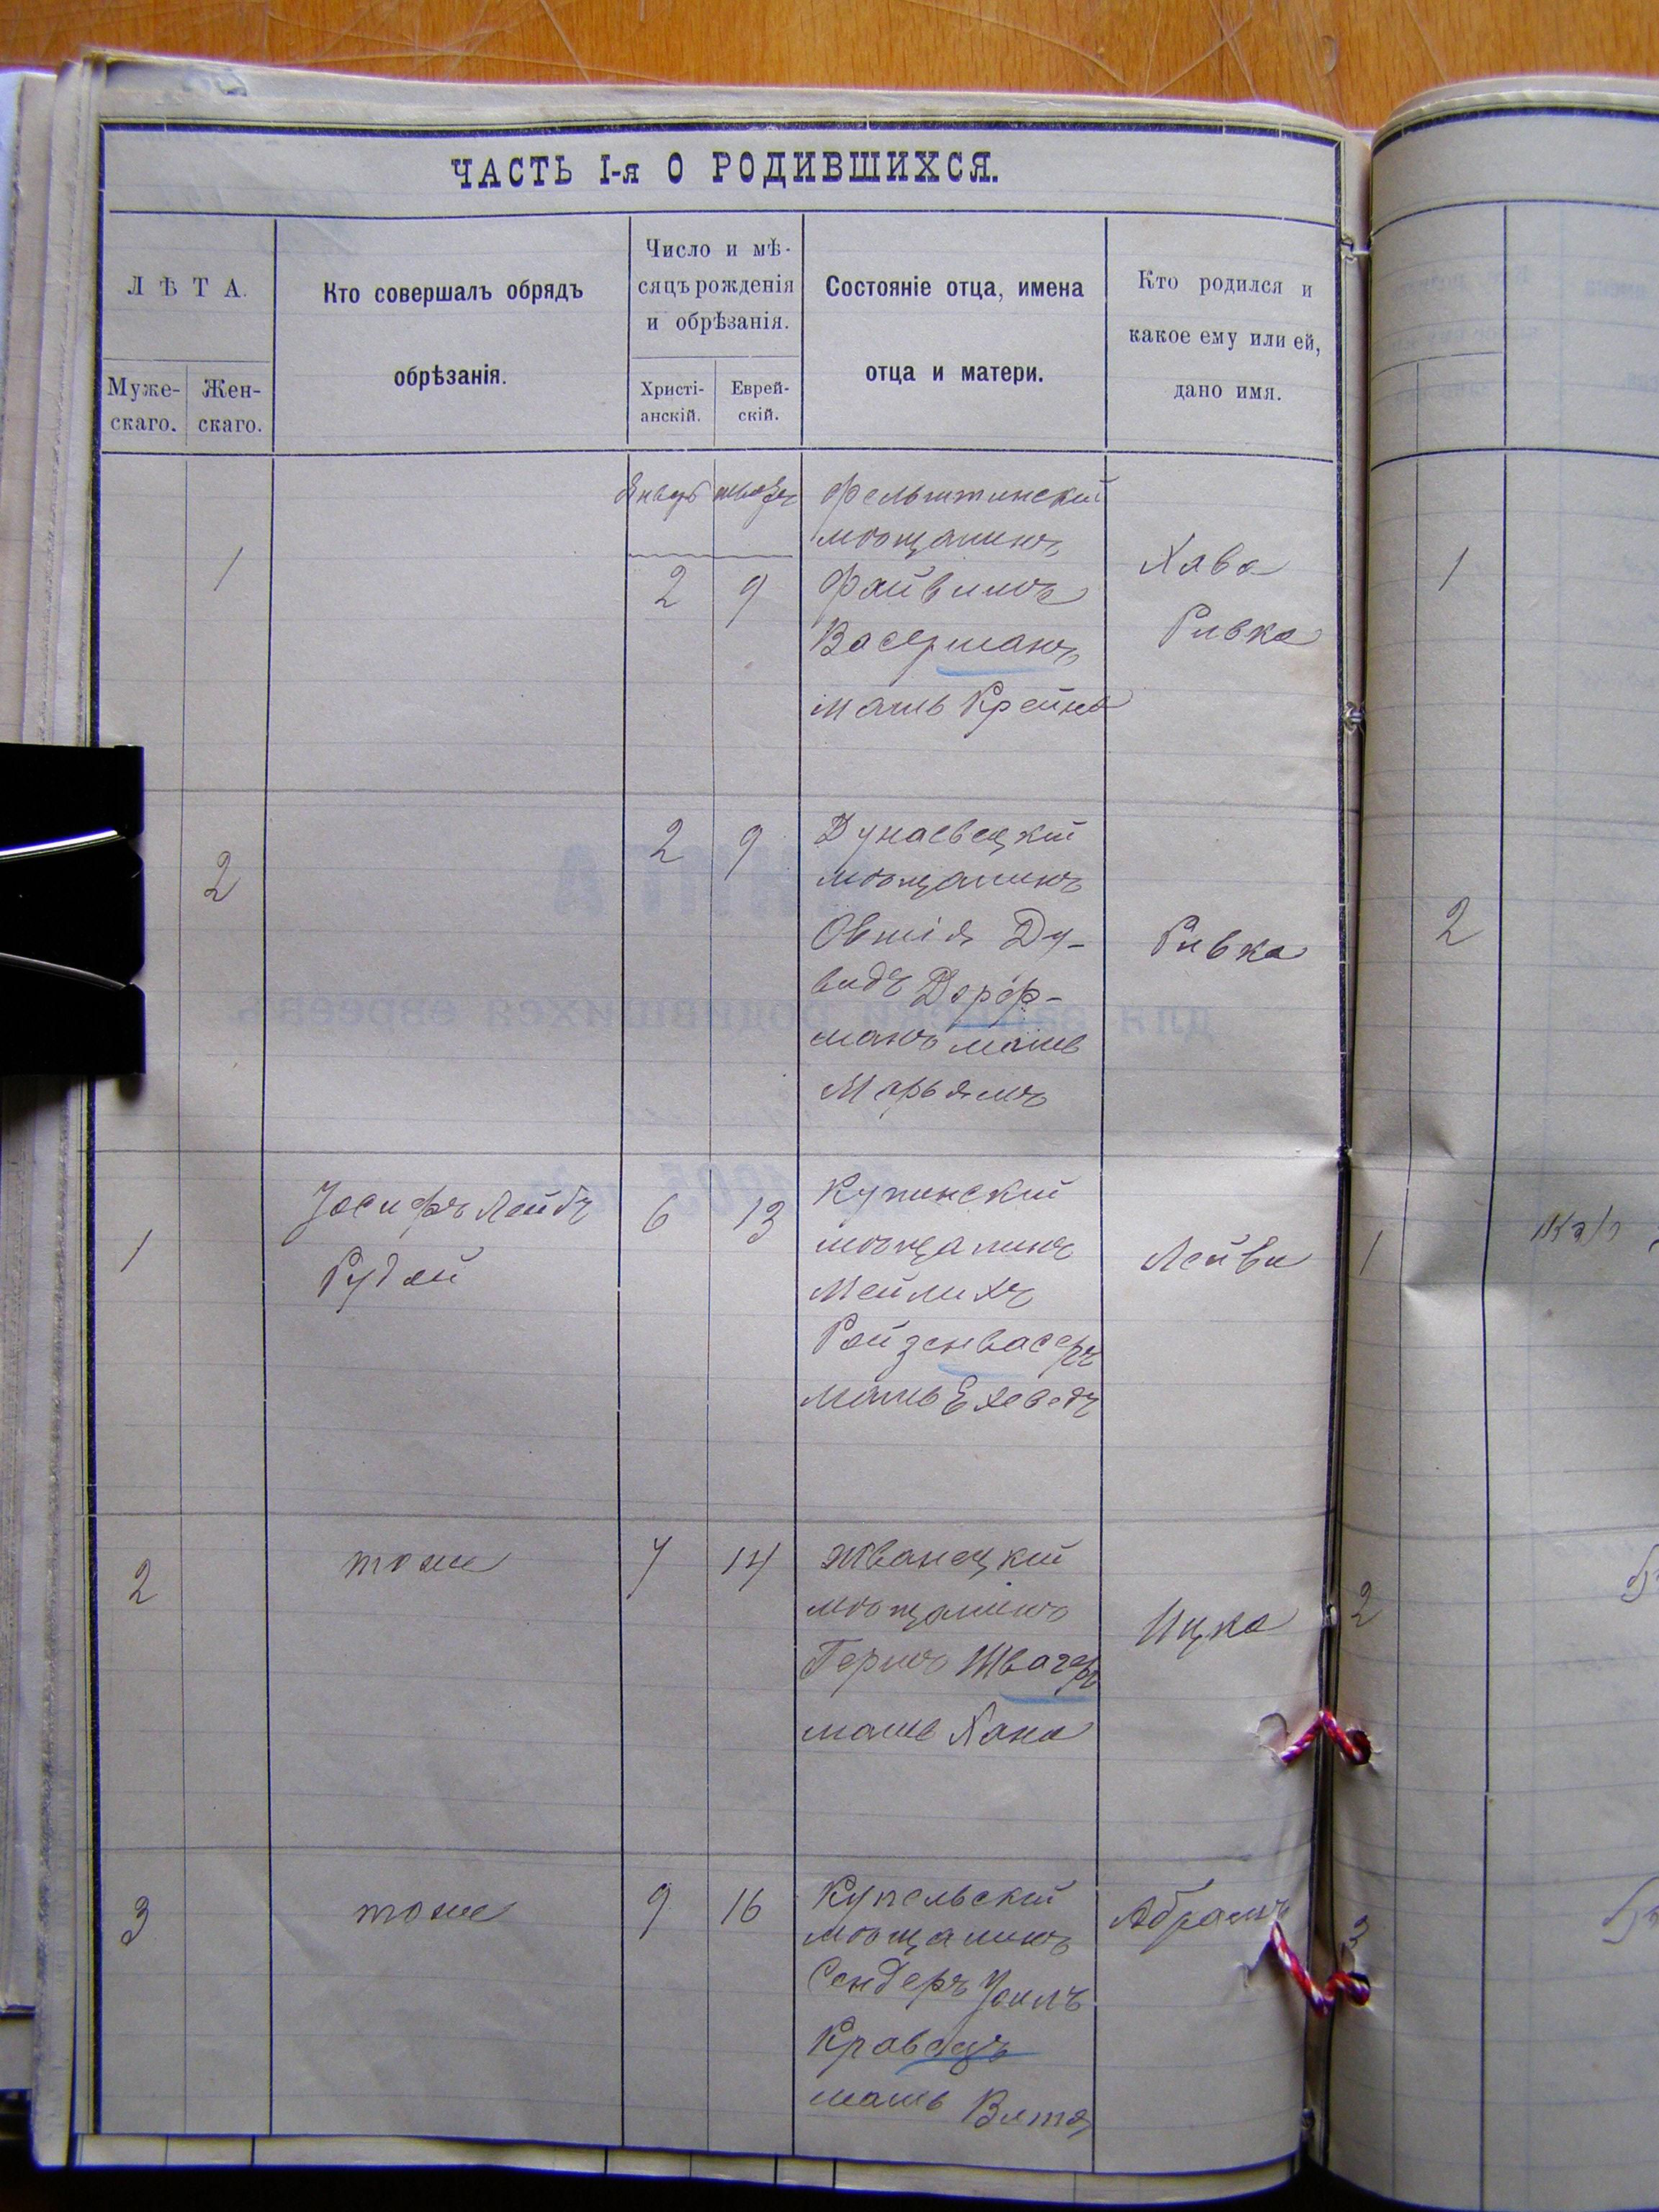 ЧАСТЬ I-я О РОДИВШИХСЯ.
ЛѢТА.
Муже-
скаго.
Жен-
скаго.
Кто совершалъ обрядъ
обрѣзанія.
Число и мѣ-
сяцъ рожденія
и обрѣзанія.
Христі-
анскій.
Еврей-
скій.
Состояніе отца, имена
отца и матери.
Кто родился и
какое ему или ей,
дано имя.
1
Январь
2
9
Фельштинскій
мѣщанинъ
Файвишъ
Васерманъ
мать Крейна
Хава
Ривка
1
2
2
9
Дунаевецкій
мѣщанинъ
Овшія Ду-
видъ Дорф-
манъ мать
Марьямъ
Ривка
2
1
Іосифъ Лейбъ
Рудой
6
13
Купинскій
мѣщанинъ
Мейлихъ
Ройзенвасеръ
мать Ехеведъ
Лейви
1
2
тоже
7
14
Жванецкій
мѣщанинъ
Гершъ Швагеръ
мать Хана
Ицко
2
3
тоже
9
16
Купельскій
мѣщанинъ
Сендеръ Іоилъ
Кравецъ
мать
Абрамъ
3